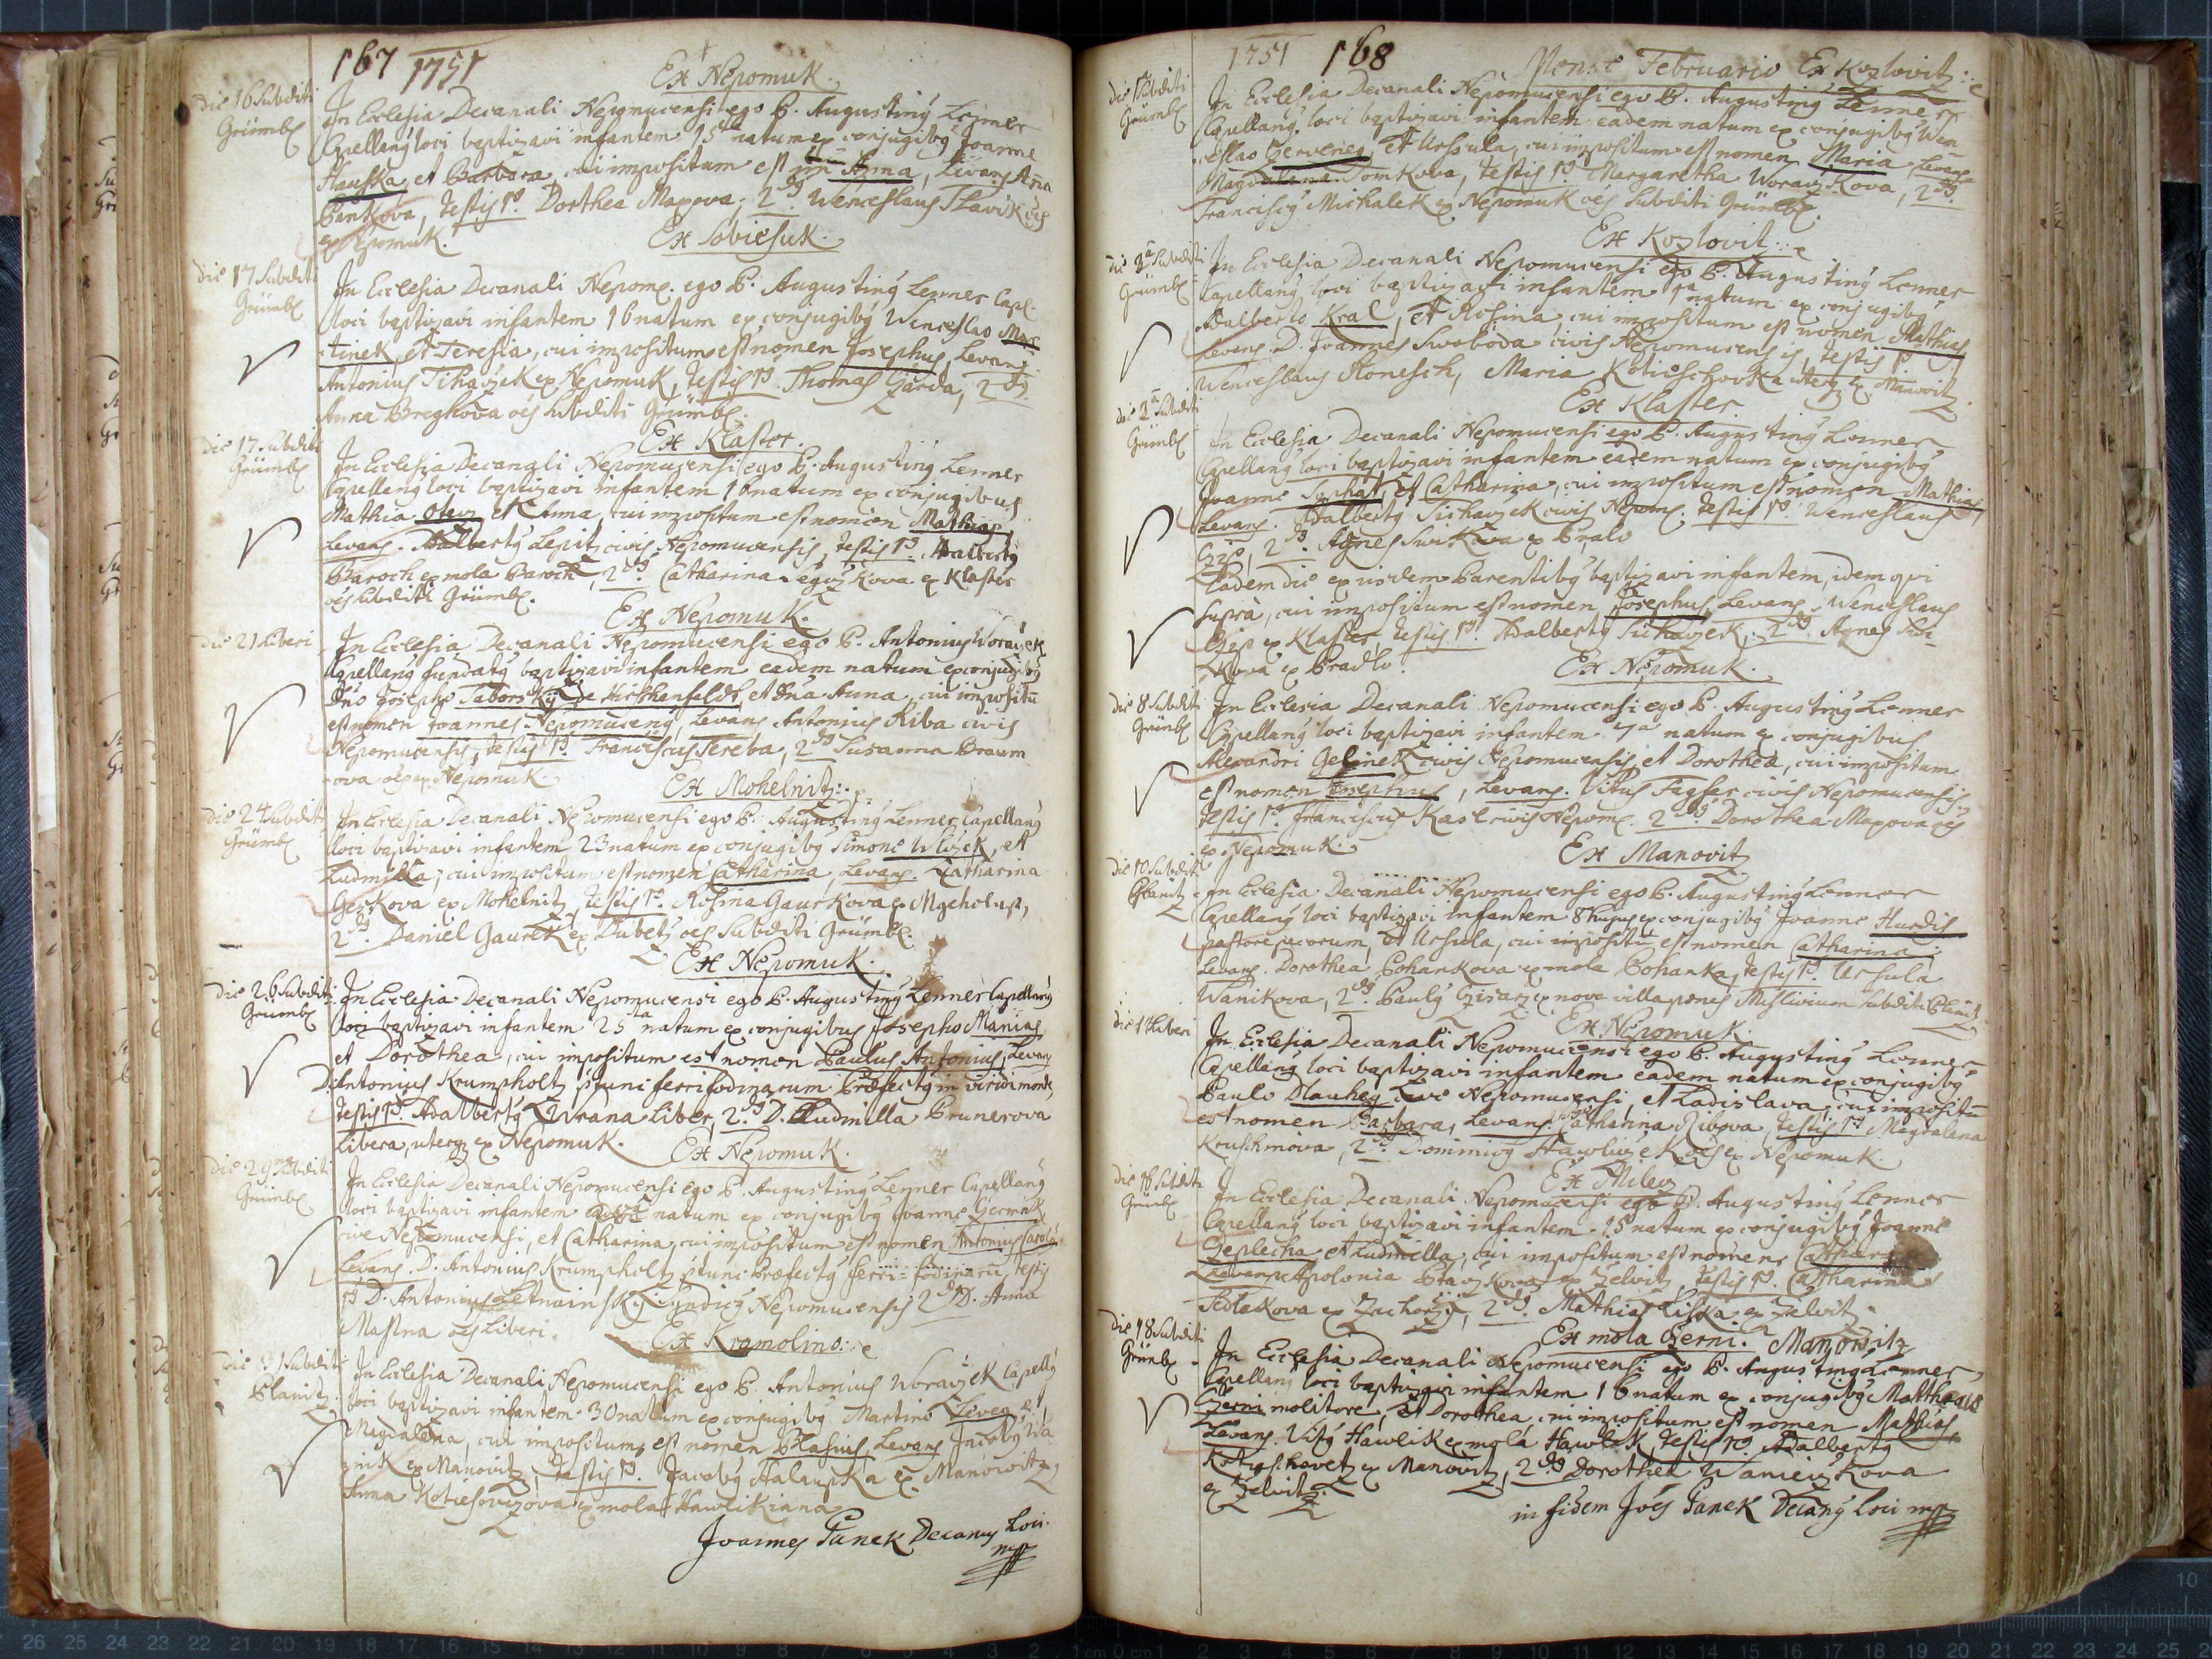 167 1751
Ex Nepomuk.
die 16 Subditi
Grünb.
In Ecclesia Decanali Nepomucensi ego P. Augustinq Lenner
Capellanq loci baptizavi infantem 15 natum ex conjugibq Joanne
Hauska, et Barbara, cui impositum est Anna, Levans Anna
Bankova, testis 1s. Dorthea Maxova, 2dq. Wenceslaus Slavik oes
ex Nepomuk.
Ex Sobiesuk.
die 17 Subditi
Grünb.
In Ecclesia Decanali Nepom. ego P. Augustinq Lenner Capl.
loci baptizavi infantem 16 natum ex conjugibq Wenceslao Mar=
tinek, et Teresia, cui impositum est nomen Josephus, Levans
Antonius Tihavzek ex Nepomuk, testis 1s. Thomas Garda, 2dq.
Anna Breghova oes Subditi Grünb.
Ex Klaster.
die 17 Subditi
Grünb.
In Ecclesia Decanali Nepomucensi ego P. Augustinq Lenner
Capellanq loci baptizavi infantem 16 natum ex conjugibus
Mathia et Anna, cui impositum est nomen Mathias,
Levans. Adalbertq Lepitz civis Nepomucensis, testis 1s. Adalbertq
Baroch ex mola Baroch, 2dq. Catharina ex Klaster
oes Subditi Grünb.
Ex Nepomuk.
die 21 Liberi
In Ecclesia Decanali Nepomucensi ego P. Antonius Woraczek
Capellanq fundatq baptizavi infantem eadem natum ex conjugibq
Dno Josepho Taborsky de Hirschenfeldt, et Dna Anna, cui impositu
est nomen Joannes Nepomucenq, Levans Antonius Riba civis
Nepomucensis, testis 1s. Franciscus Tereba, 2dq Susanna Braum
=ova oes ex Nepomuk.
Ex Mohelnitz.
die 24 Subditi
Grünb.
In Ecclesia Decanali Nepomucensi ego P. Augustinq Lenner Capellanq
loci baptizavi infantem 23 natum ex conjugibq Simone Wlczek, et
Ludmilla, cui impositum est nomen Catharina, Levans. Catharina
Gerkova ex Mohelnitz, testis 1s. Rosina Gaurkova ex
2dq. Daniel Gaurek ex Dubetz oes Subditi Grünb.
Ex Nepomuk.
die 26 Subditi
Grünb.
In Ecclesia Decanali Nepomucensi ego P. Augustinq Lenner Capellanq
loci baptizavi infantem 25ta natum ex conjugibus Josepho Manias
et Dorothea, cui impositum est nomen Paulus Antonius, Levans
D. Antonius Krumpholtz ptunc ferrifodinarum Præfectq in viridi monte,
testis 1s. Adalbertq Wrana Liber, 2dq D. Ludmilla Brunerova
libera, uterq ex Nepomuk.
Ex Nepomuk.
die 29na Subditi
Grünb.
In Ecclesia Decanali Nepomucensi ego P. Augustinq Lenner Capellanq
loci baptizavi infantem natum ex conjugibq Joanne Germak
cive Nepomucensi, et Catharina, cui impositum est nomen Antonius Carolq
Levans. D. Antonius Krumpholtz ptunc Præfectq ferri=fodinaru, testis
1s D. Antonius Letnainsky Syndicq Nepomucensis 2dq D. Anna
Mastna oes Liberi.
Ex Kramolino.
die 31 Subditi
Planitz.
In Ecclesia Decanali Nepomucensi ego P. Antonius Woraczek Capellq
loci baptizavi infantem 30 natum ex conjugibq Martino et
Magdalena, cui impositum est nomen Blasius, Levans Jacobq Wa
znik ex Manovitz, testis 1s. Jacobq Halauska ex Manowitz,
Anna Kotiesovizova ex mola Hawlikiana
Joannes Panek Decanus Loci
mpp
1751 168
Mense Februario Ex Kozlovitz.
die 1 Subditi
Grünb.
In Ecclesia Decanali Nepomucensi ego P. Augustinq Lenner
Capellanq loci baptizavi infantem eadem natum ex conjugibq Wen=
ceslao Czerveney, et Ursula, cui impositum est nomen Maria Levans
Magdalena Tomkova, testis 1s. Margaretha Woraczkova, 2dq.
Franciscq Michalek ex Nepomuk oes Subditi Grünb.
Ex Kozlovit.
die 2a Subditi
Grünb.
In Ecclesia Decanali Nepomucensi ego P. Augustinq Lenner
Capellanq loci baptizavi infantem 1a natum ex conjugibq
Adalberto Kral, et Rosina, cui impositum est nomen Mathias,
Levans D. Joannes Swoboda civis Nepomucensis, testis 1s
Wenceslaus Ronesch, Maria Kotieschovka uterq ex Manovitz.
Ex Klaster.
die 2a Subditi
Grünb.
In Ecclesia Decanali Nepomucensi ego P. Augustinq Lenner
Capellanq loci baptizavi infantem eadem natum ex conjugibq
Joanne et Catharina, cui impositum est nomen Mathias,
Levans. Adalbertq Tichavzek civis Nepom. testis 1s. Wenceslaus
Czip, 2dq. Agnes Swikova ex Pralo
Eadem die ex iisdem Parentibq baptizavi infantem, idem qui
supra, cui impositum est nomen Josephus, Levans. Wenceslaus
Czip ex Klaster, testis 1s. Adalbertq Tichavzek, 2dq. Agnes Swi=
kova ex Pradlo.
Ex Nepomuk.
die 8 Subditi
Grünb.
In Ecclesia Decanali Nepomucensi ego P. Augustinq Lenner
Capellanq loci baptizavi infantem 7a natum ex conjugibus
Alexandri Gelinek civis Nepomucensis, et Dorothea, cui impositum
est nomen Josephus, Levans. Vitus Fegser civis Nepomucensis,
testis 1s Franciscus Kasl civis Nepom. 2dq Dorothea Maxova oes
ex Nepomuk.
Ex Manovitz
die 10 Subditi
Planitz
In Ecclesia Decanali Nepomucensi ego P. Augustinq Lenner
Capellanq loci baptizavi infantem 8 hujus ex conjugibq Joanne Hurdis
pastore pecorum, et Ursula, cui impositu est nomen Catharina,
Levans. Dorothea Pohankova ex mola Pohanka, testis 1s. Ursula
Wanikova, 2dq. Paulq ex nova villa penes Mislivium Subditi Planitz
Ex Nepomuk.
die 14 Liberi
In Ecclesia Decanali Nepomucensi ego P. Augustinq Lenner
Capellanq loci baptizavi infantem eadem natum ex conjugibq
Paulo Dlauhey cive Nepomucensi, et Ladislava, cui impositu
est nomen Barbara, Levans. Catharina Ribova, testis 1s Magdalena
Kruschinova, 2dq. Dominicq Hawliczek oes ex Nepomuk.
Ex Milcz
die 16 Subditi
Grünb.
In Ecclesia Decanali Nepomucensi ego P. Augustinq Lenner
Capellanq loci baptizavi infantem 15 natum ex conjugibq Joanne
Geplecha, et Ludmilla, cui impositum est nomen Catharina
Levans Apolonia ex Zelvitz, testis 1s. Catharina
Sedlakova ex Zachorzy, 2dq. Mathias Liska ex Zelvitz.
Ex mola Czerni. Manowitz
die 18 Subditi
Grünb.
In Ecclesia Decanali Nepomucensi ego P. Augustinq Lenner,
Capellanq loci baptizavi infantem 16 natum ex conjugibq Matthæo
Czerni molitore, et Dorothea, cui impositum est nomen Mathias,
Levans. Vitq Hawlik ex mola Hawlik, testis 1s. Adalbertq
ex Manovitz, 2dq Dorothea Waniczkova
ex Zelvitz.
in fidem Joes Panek Decanq Loci mpp